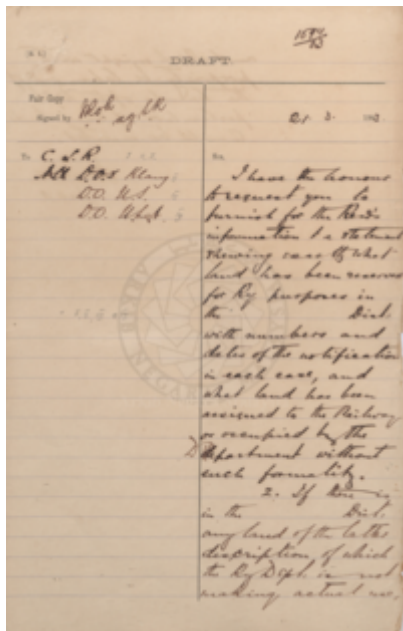 DRAFT.
Fair Copy
Signed by
21 3
To C. L. R
Sir,
All D.O.s Klang
D.O. U.S.
D.O. U. Lgt.
I have the honour
to request you to
furnish for the Res's
information a statement
shewing exactly what
land has been reserved
for Ry purposes in
the Dist.
with numbers and
dates of the notification
in each case, and
what land has been
assigned to the Railway
or occupied by the
Department without
such formality.
2. If there is
in the Dist.
any land of the latter
description, of which
the Ry Dept. is not
making actual use,
ARKIB NEGARA